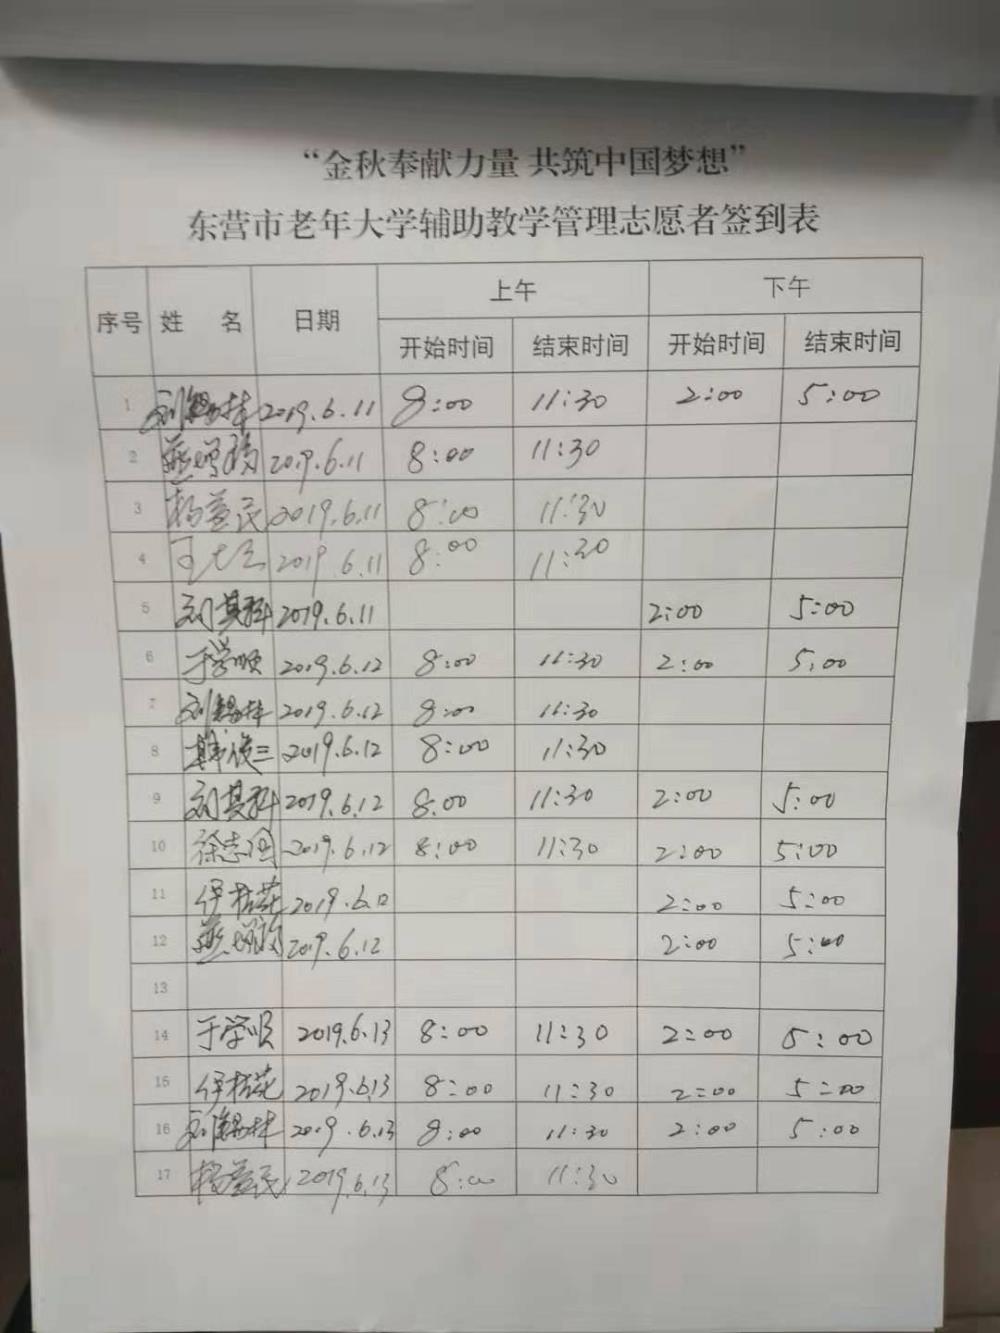 “金秋奉献力量 共筑中国梦想”
东营市老年大学辅助教学管理志愿者签到表
序号 姓 名 日期 上午 下午
开始时间 结束时间 开始时间 结束时间
1 2019.6.11 8:00 11:30 2:00 5:00
2 2019.6.11 8:00 11:30
3 杨益民 2019.6.11 8:00 11:30
4 2019.6.11 8:00 11:30
5 刘其科 2019.6.11 2:00 5:00
6 于学顺 2019.6.12 8:00 11:30 2:00 5:00
7 2019.6.12 8:00 11:30
8 韩俊三 2019.6.12 8:00 11:30
9 刘其科 2019.6.12 8:00 11:30 2:00 5:00
10 2019.6.12 8:00 11:30 2:00 5:00
11 伊桂花 2019.6.12 2:00 5:00
12 2019.6.12 2:00 5:00
13
14 于学顺 2019.6.13 8:00 11:30 2:00 5:00
15 伊桂花 2019.6.13 8:00 11:30 2:00 5:00
16 2019.6.13 8:00 11:30 2:00 5:00
17 杨益民 2019.6.13 8:00 11:30